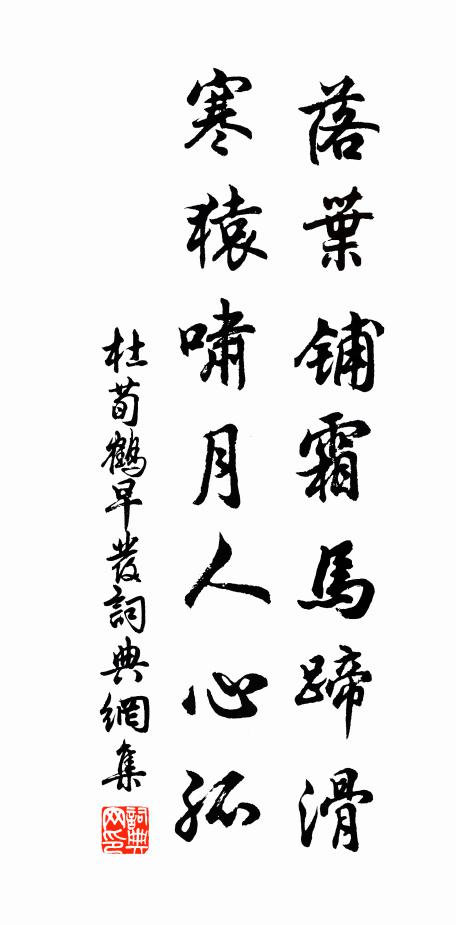 落葉鋪霜馬蹄滑
寒猿嘯月人心孤
杜荀鶴早發詞典網集
詞典网印